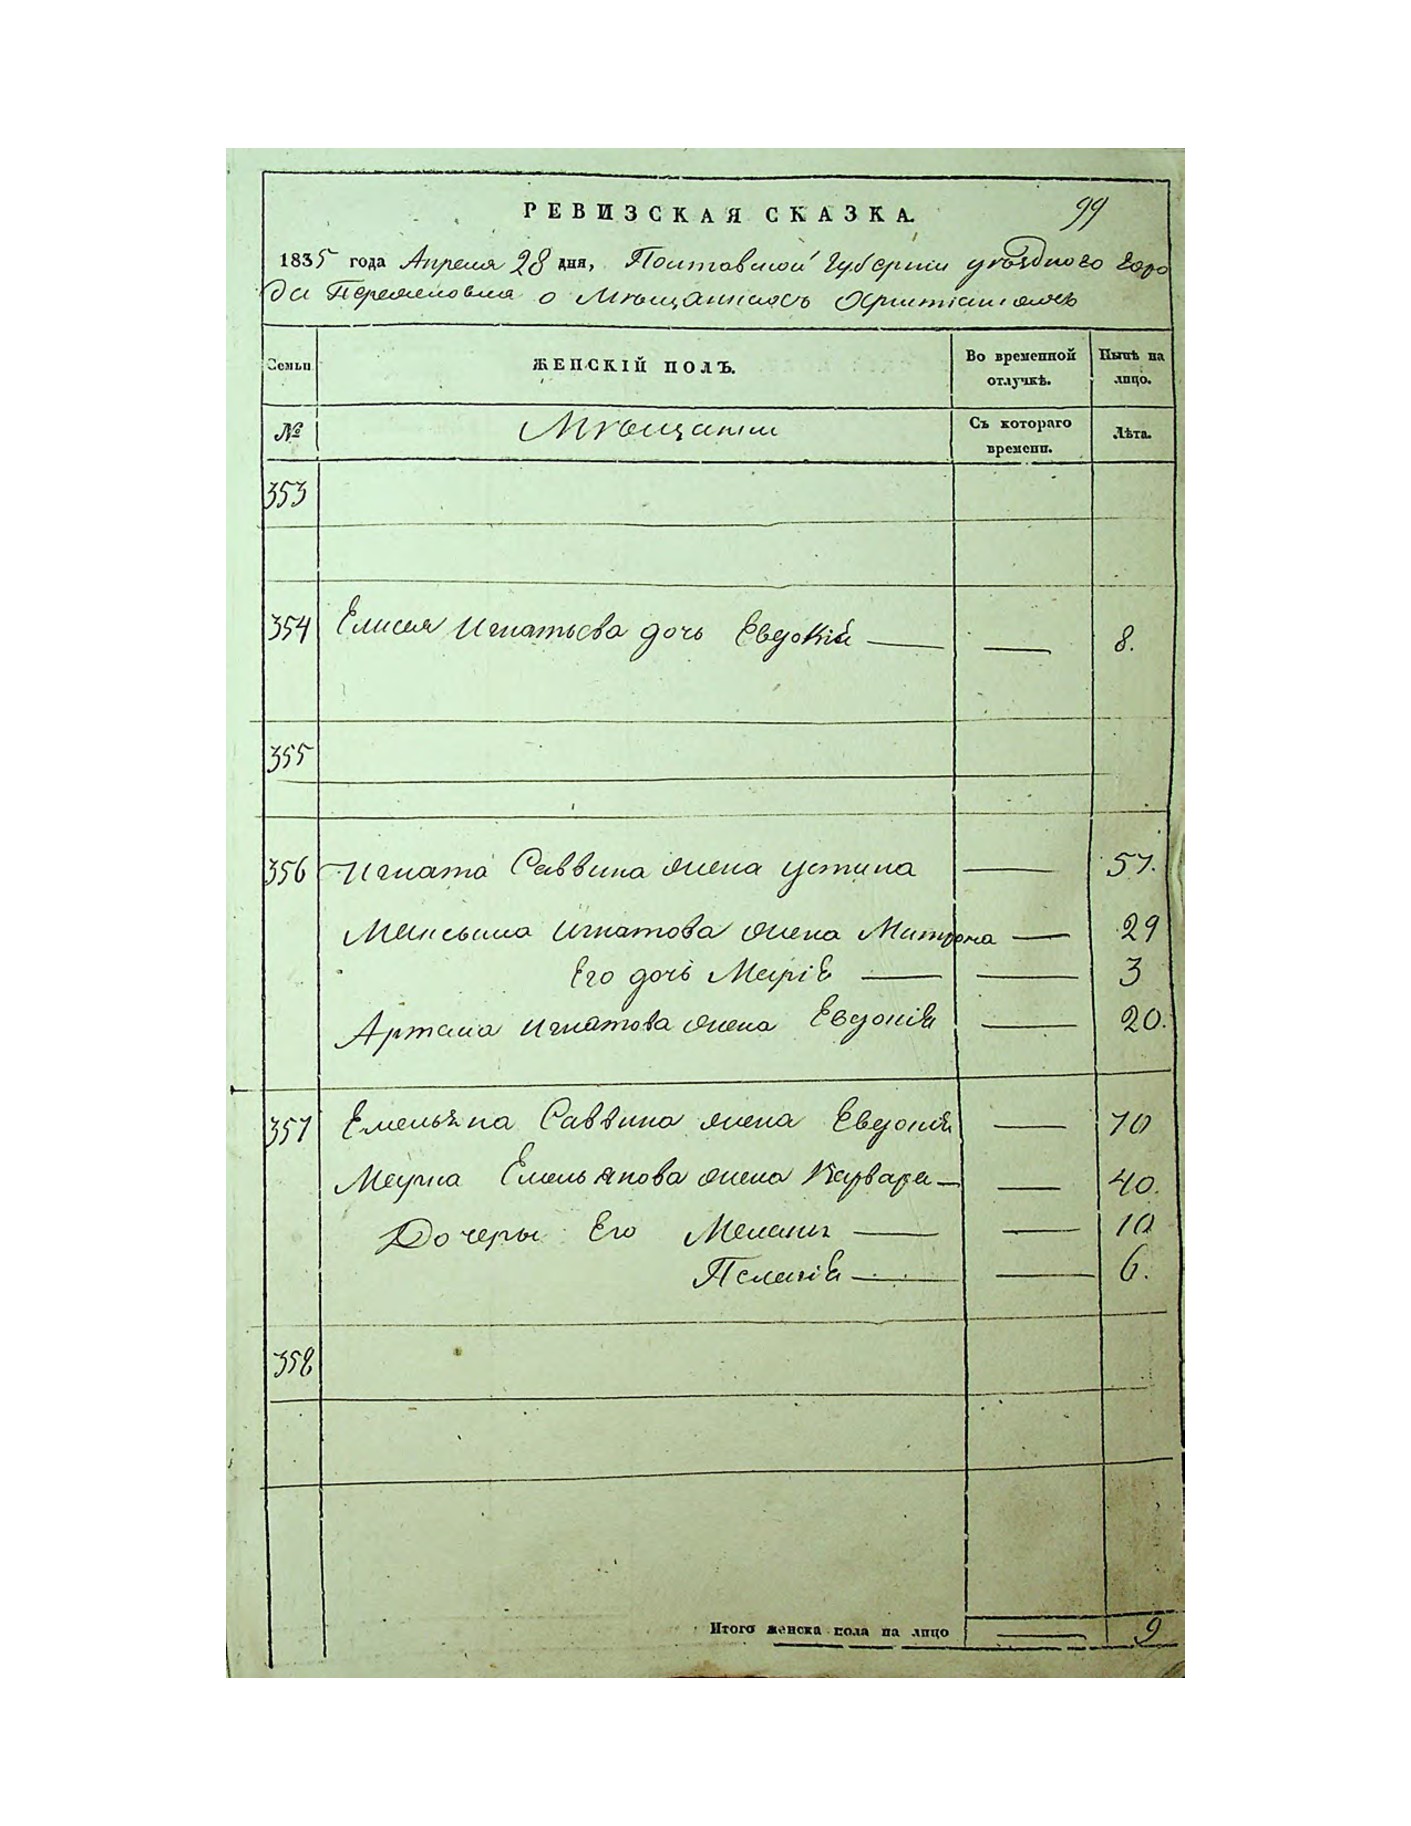 РЕВИЗСКАЯ СКАЗКА.
99
1835 года Апреля 28 дня, Полтавской Губернии уѣздного горо
да Переяслова о Мѣщанахъ Христіанахъ
Семьи
ЖЕНСКІЙ ПОЛЪ.
Во временной отлучкѣ.
Нынѣ на лицо.
№
Мѣщани
Съ котораго времени.
Лѣта.
353
354 Елисея Игнатьева дочь Евдокія — — 8.
355
356 Игната Саввина жена Устина — 57.
Максыма Игнатова жена Матрона — 29
Его дочь Марія — — 3
Артема Игнатова жена Евдокія — 20.
357 Емельяна Саввина жена Евдокія — 70
Марка Емельянова жена Варвара — — 40.
Дочеры Его Меланія — — 10
Пелагія — — 6.
358
Итого женска пола на лицо — 9